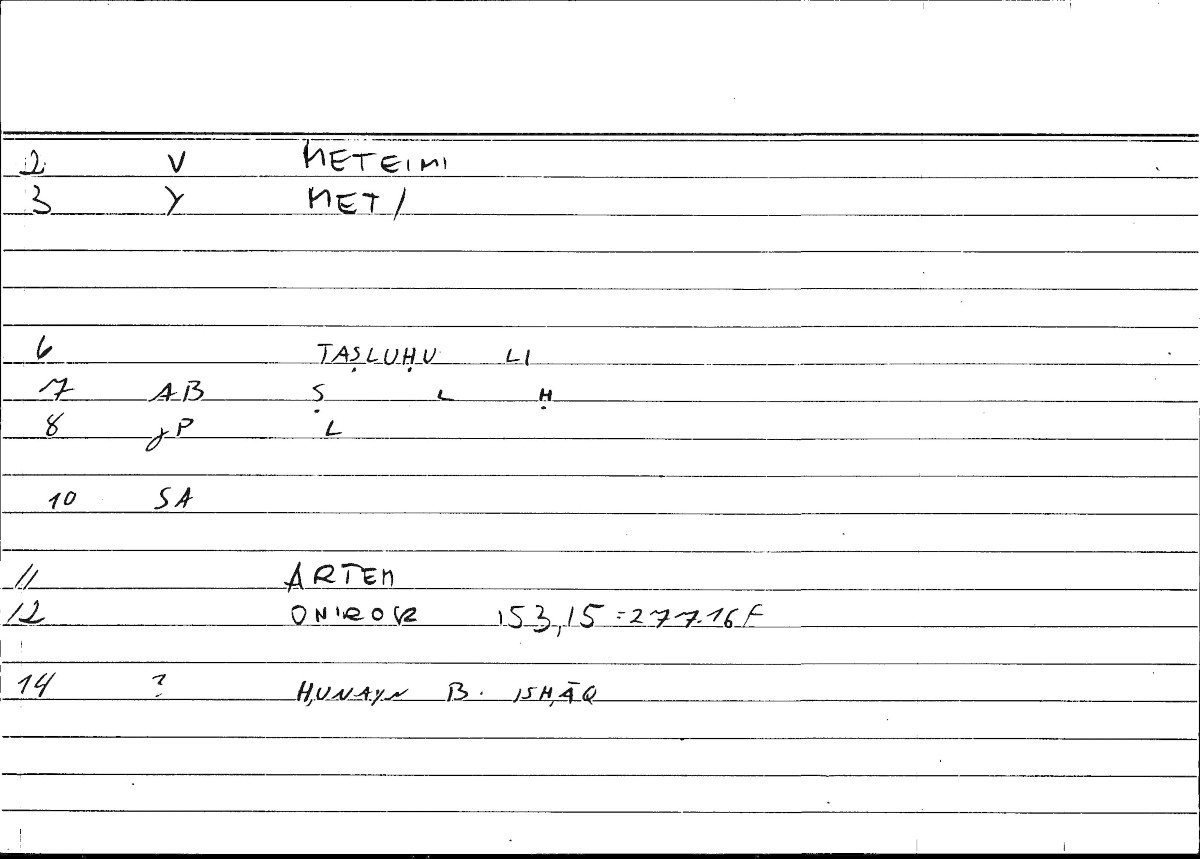 2 V METEIMI
3 Y MET/
6 TAṢLUḤU LI
7 AB Ṣ L Ḥ
8 gP L
10 SA
11 ARTEM
12 ONIROKR 153,15 = 277.16 F
14 ? ḤUNAYN B. ISḤĀQ